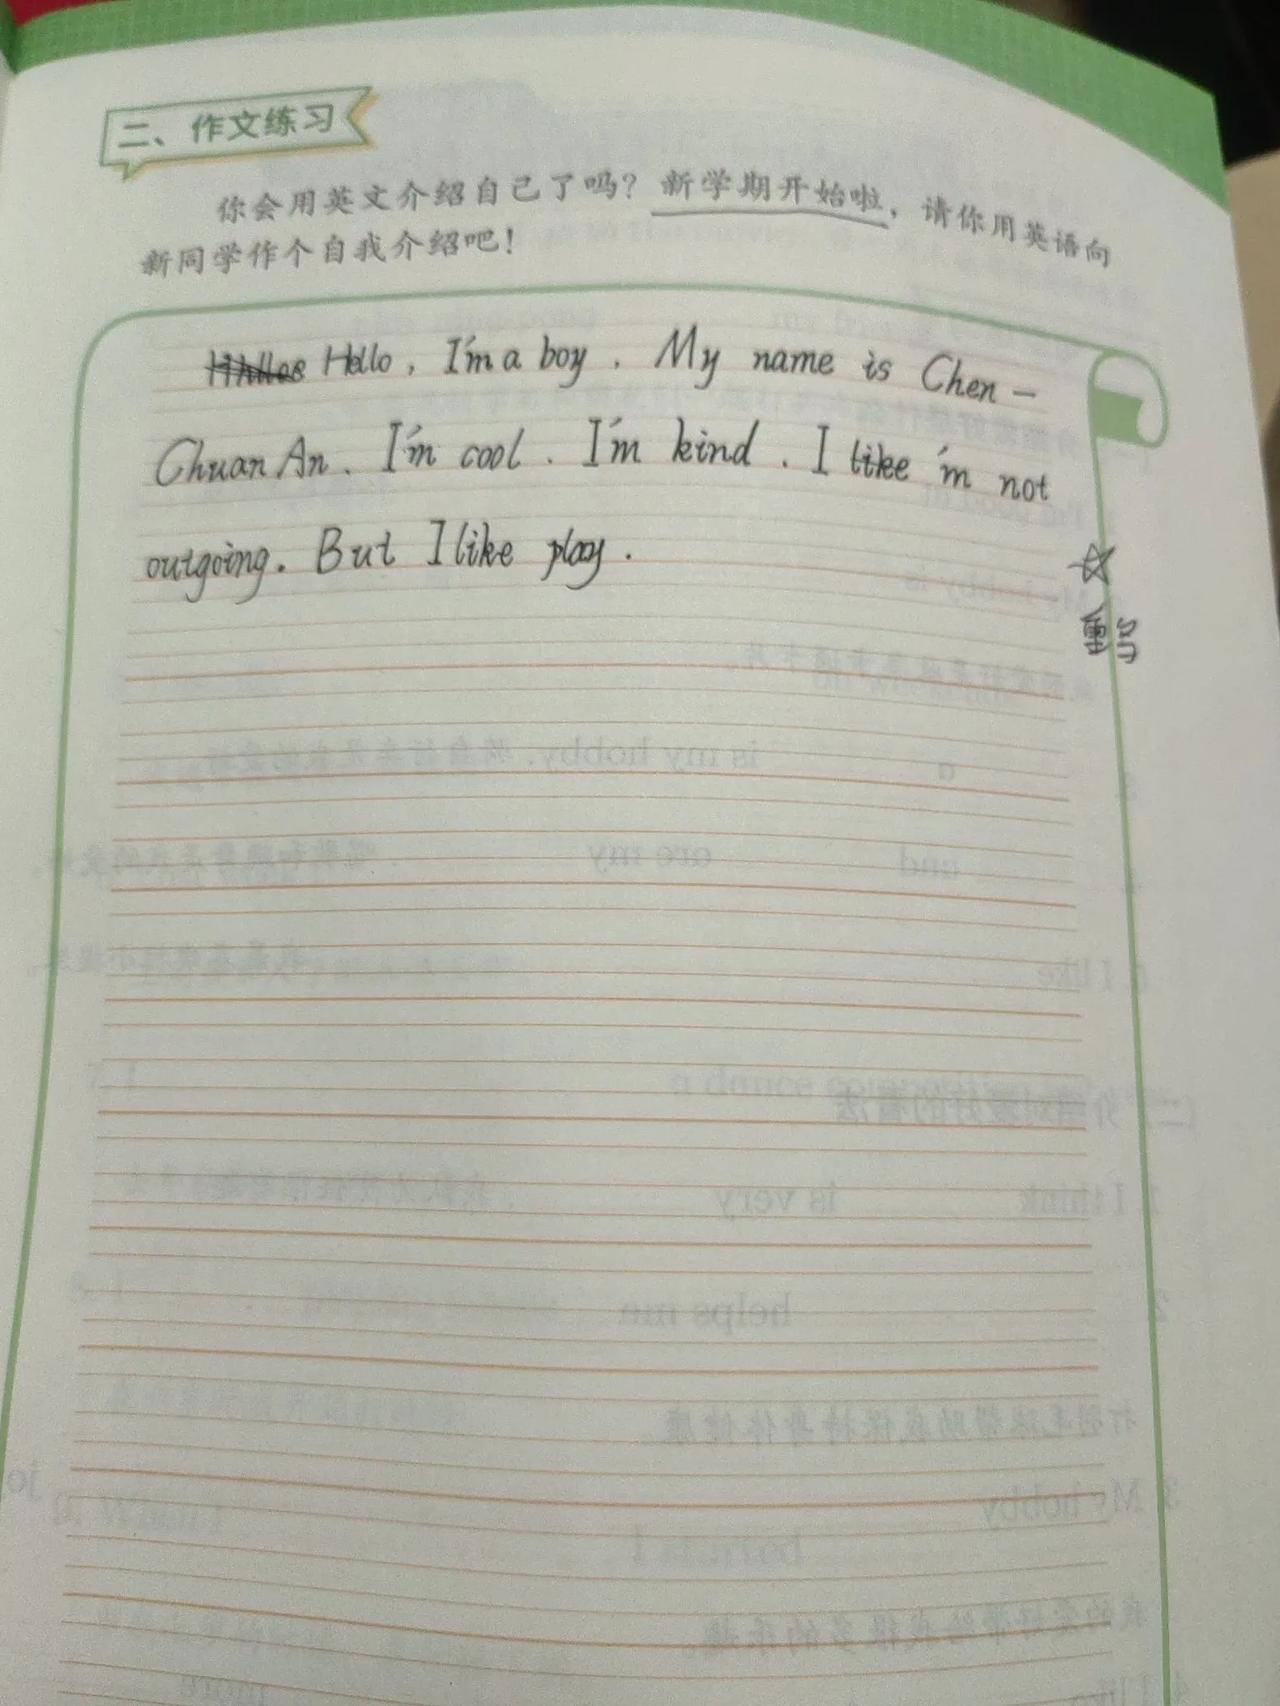 二、作文练习
你会用英文介绍自己了吗？新学期开始啦，请你用英语向
新同学作个自我介绍吧！
Hello, I'm a boy. My name is Chen-
Chuan An. I'm cool. I'm kind. I like 'm not
outgoing. But I like play.
重写